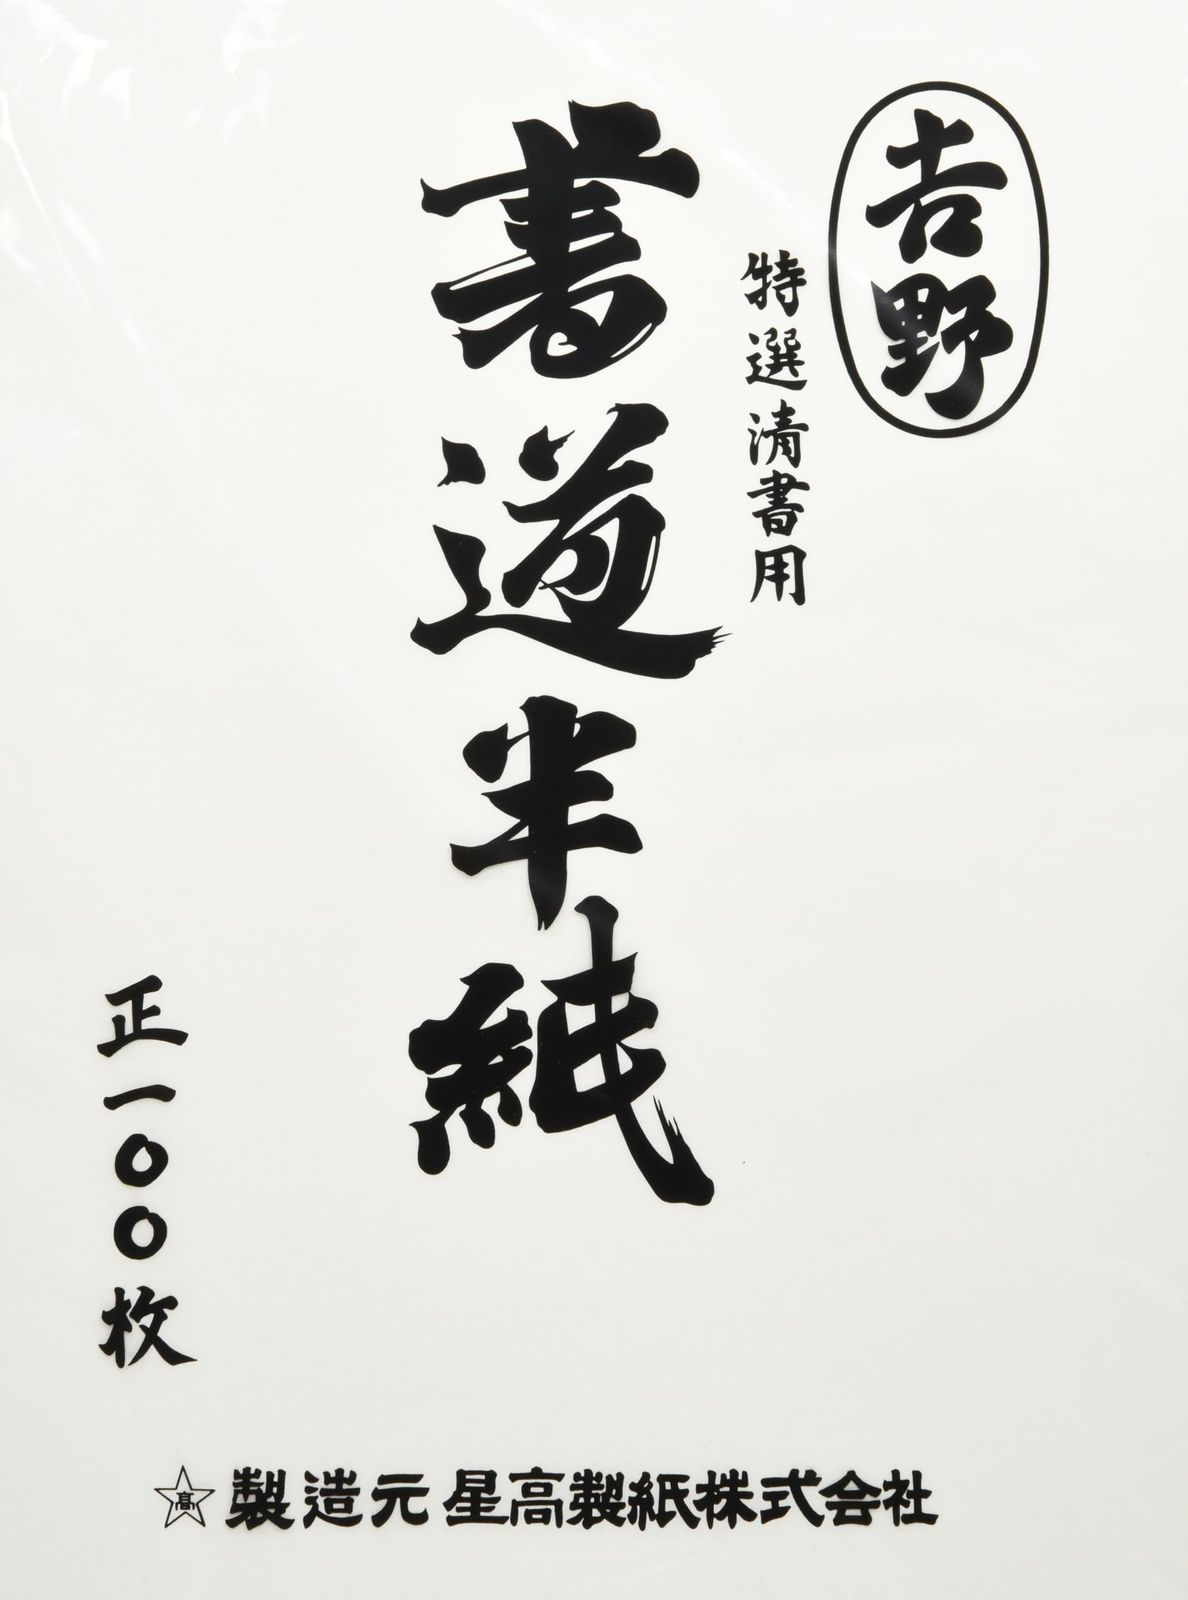 吉野
特選清書用
書道半紙
正一〇〇枚
高
製造元 星高製紙株式会社